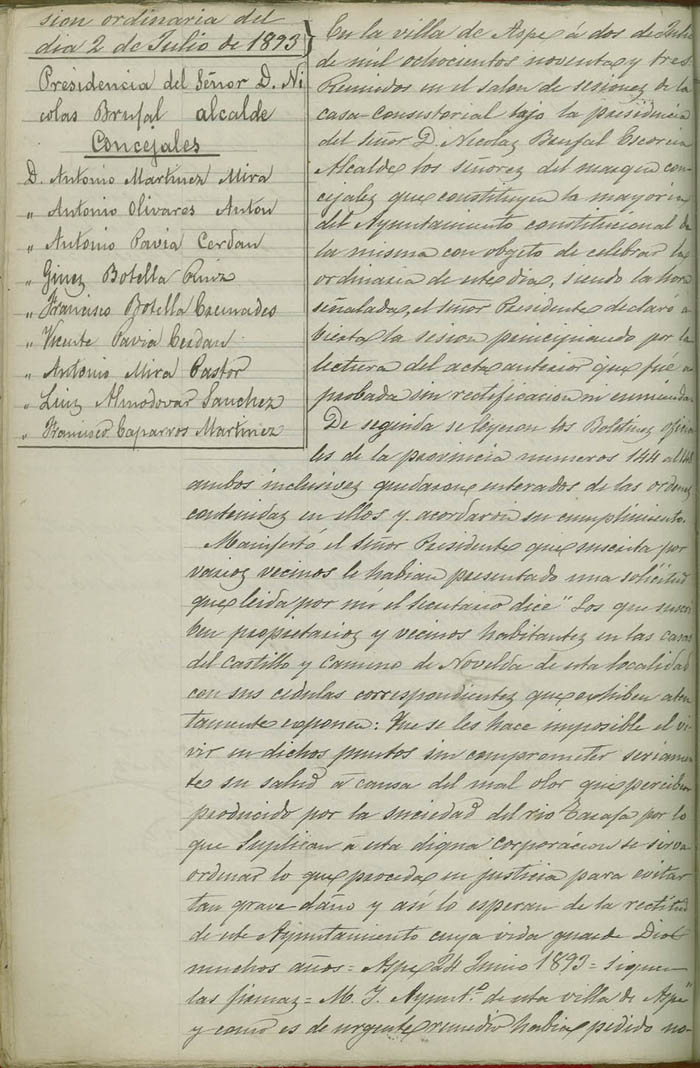 sion ordinaria del
dia 2 de Julio de 1893
Presidencia del Señor D. Ni
colas Brufal alcalde
Concejales
D. Antonio Martinez Mira
" Antonio Olivares Anton
" Antonio Pavia Cerdan
" Ginez Botella
" Francisco Botella Cremades
" Vicente Pavia Cerdan
" Antonio Mira Pastor
" Luiz Almodovar Sanchez
" Francisco Caparros Martinez
En la villa de Aspe á dos de Julio
de mil ochocientos noventa y tres.
Reunidos en el salon de sesionez de la
casa consistorial bajo la presidencia
del señor D. Nicolaz Brufal
Alcalde los señorez del margen con-
cejalez que constituyen la mayoria
del Ayuntamiento constitucional de
la misma con objeto de celebrar la
ordinaria de este dia, siendo la hora
señalada, el señor Presidente declaró a
bierta la sesion principiando por la
lectura del acta anterior que fué a
probada sin rectificacion ni enmienda.
De seguida se leyeron los Boletinez oficia
les de la provincia numeros 144 al 148
ambos inclusivez quedaron enterados de las ordenez
contenidaz en ellos y acordaron su cumplimiento.
Manifestó el señor Presidente que suscrita por
varioz vecinos le habian presentado una solicitud
que leida por mi el secretario dice "Los que suscri
ben propietarioz y vecinos habitantez en las casas
del Castillo y Camino de Novelda de esta localidad
con sus cedulas correspondientez que exhiben aten
tamente exponen: Que se les hace imposible el vi
vir en dichos puntos sin comprometer seriamen
te su salud á causa del mal olor que perciben
producido por la suciedad del rio Tarafa por lo
que Suplican á esta digna corporacion se sirva
ordenar lo que proceda en justicia para evitar
tan grave daño y así lo esperan de la rectitud
de este Ayuntamiento cuya vida guarde Dios
muchos años = Aspe 24 Junio 1893 = siguen
las firmaz = M. I. Ayunt.º de esta villa de Aspe"
y como es de urgente remedio habia pedido no-